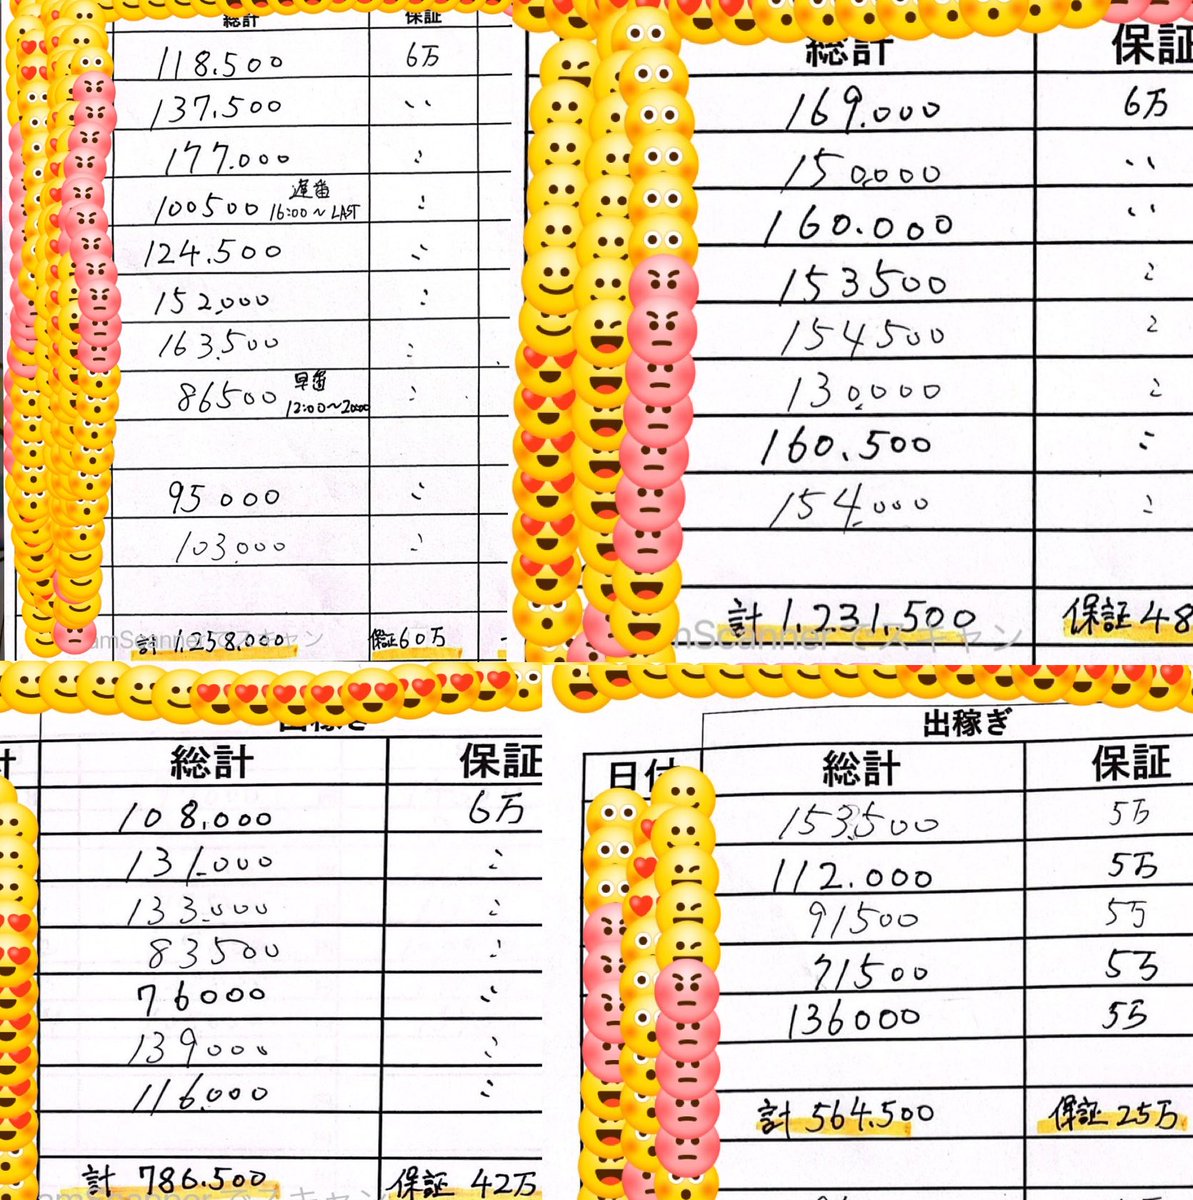 総計 保証
118.500 6万
137.500 〃
177.000 〃
100500 遅番 16:00～LAST 〃
124.500 〃
152.000 〃
163.500 〃
86500 早番 12:00～20:00 〃
95000 〃
103.000 〃
計 1.258.000 保証60万
amScannerでスキャン
総計 保証
169.000 6万
150.000 〃
160.000 〃
153500 〃
154500 〃
130.000 〃
160.500 〃
154.000 〃
計 1.231.500 保証48
amScannerでスキャン
出稼ぎ
総計 保証
108.000 6万
131.000 〃
133.000 〃
83500 〃
76000 〃
139000 〃
116.000 〃
計 786.500 保証 42万
amScannerでスキャン
出稼ぎ
日付 総計 保証
153.500 5万
112.000 5万
91500 5万
71500 5万
136000 5万
計 564.500 保証 25万